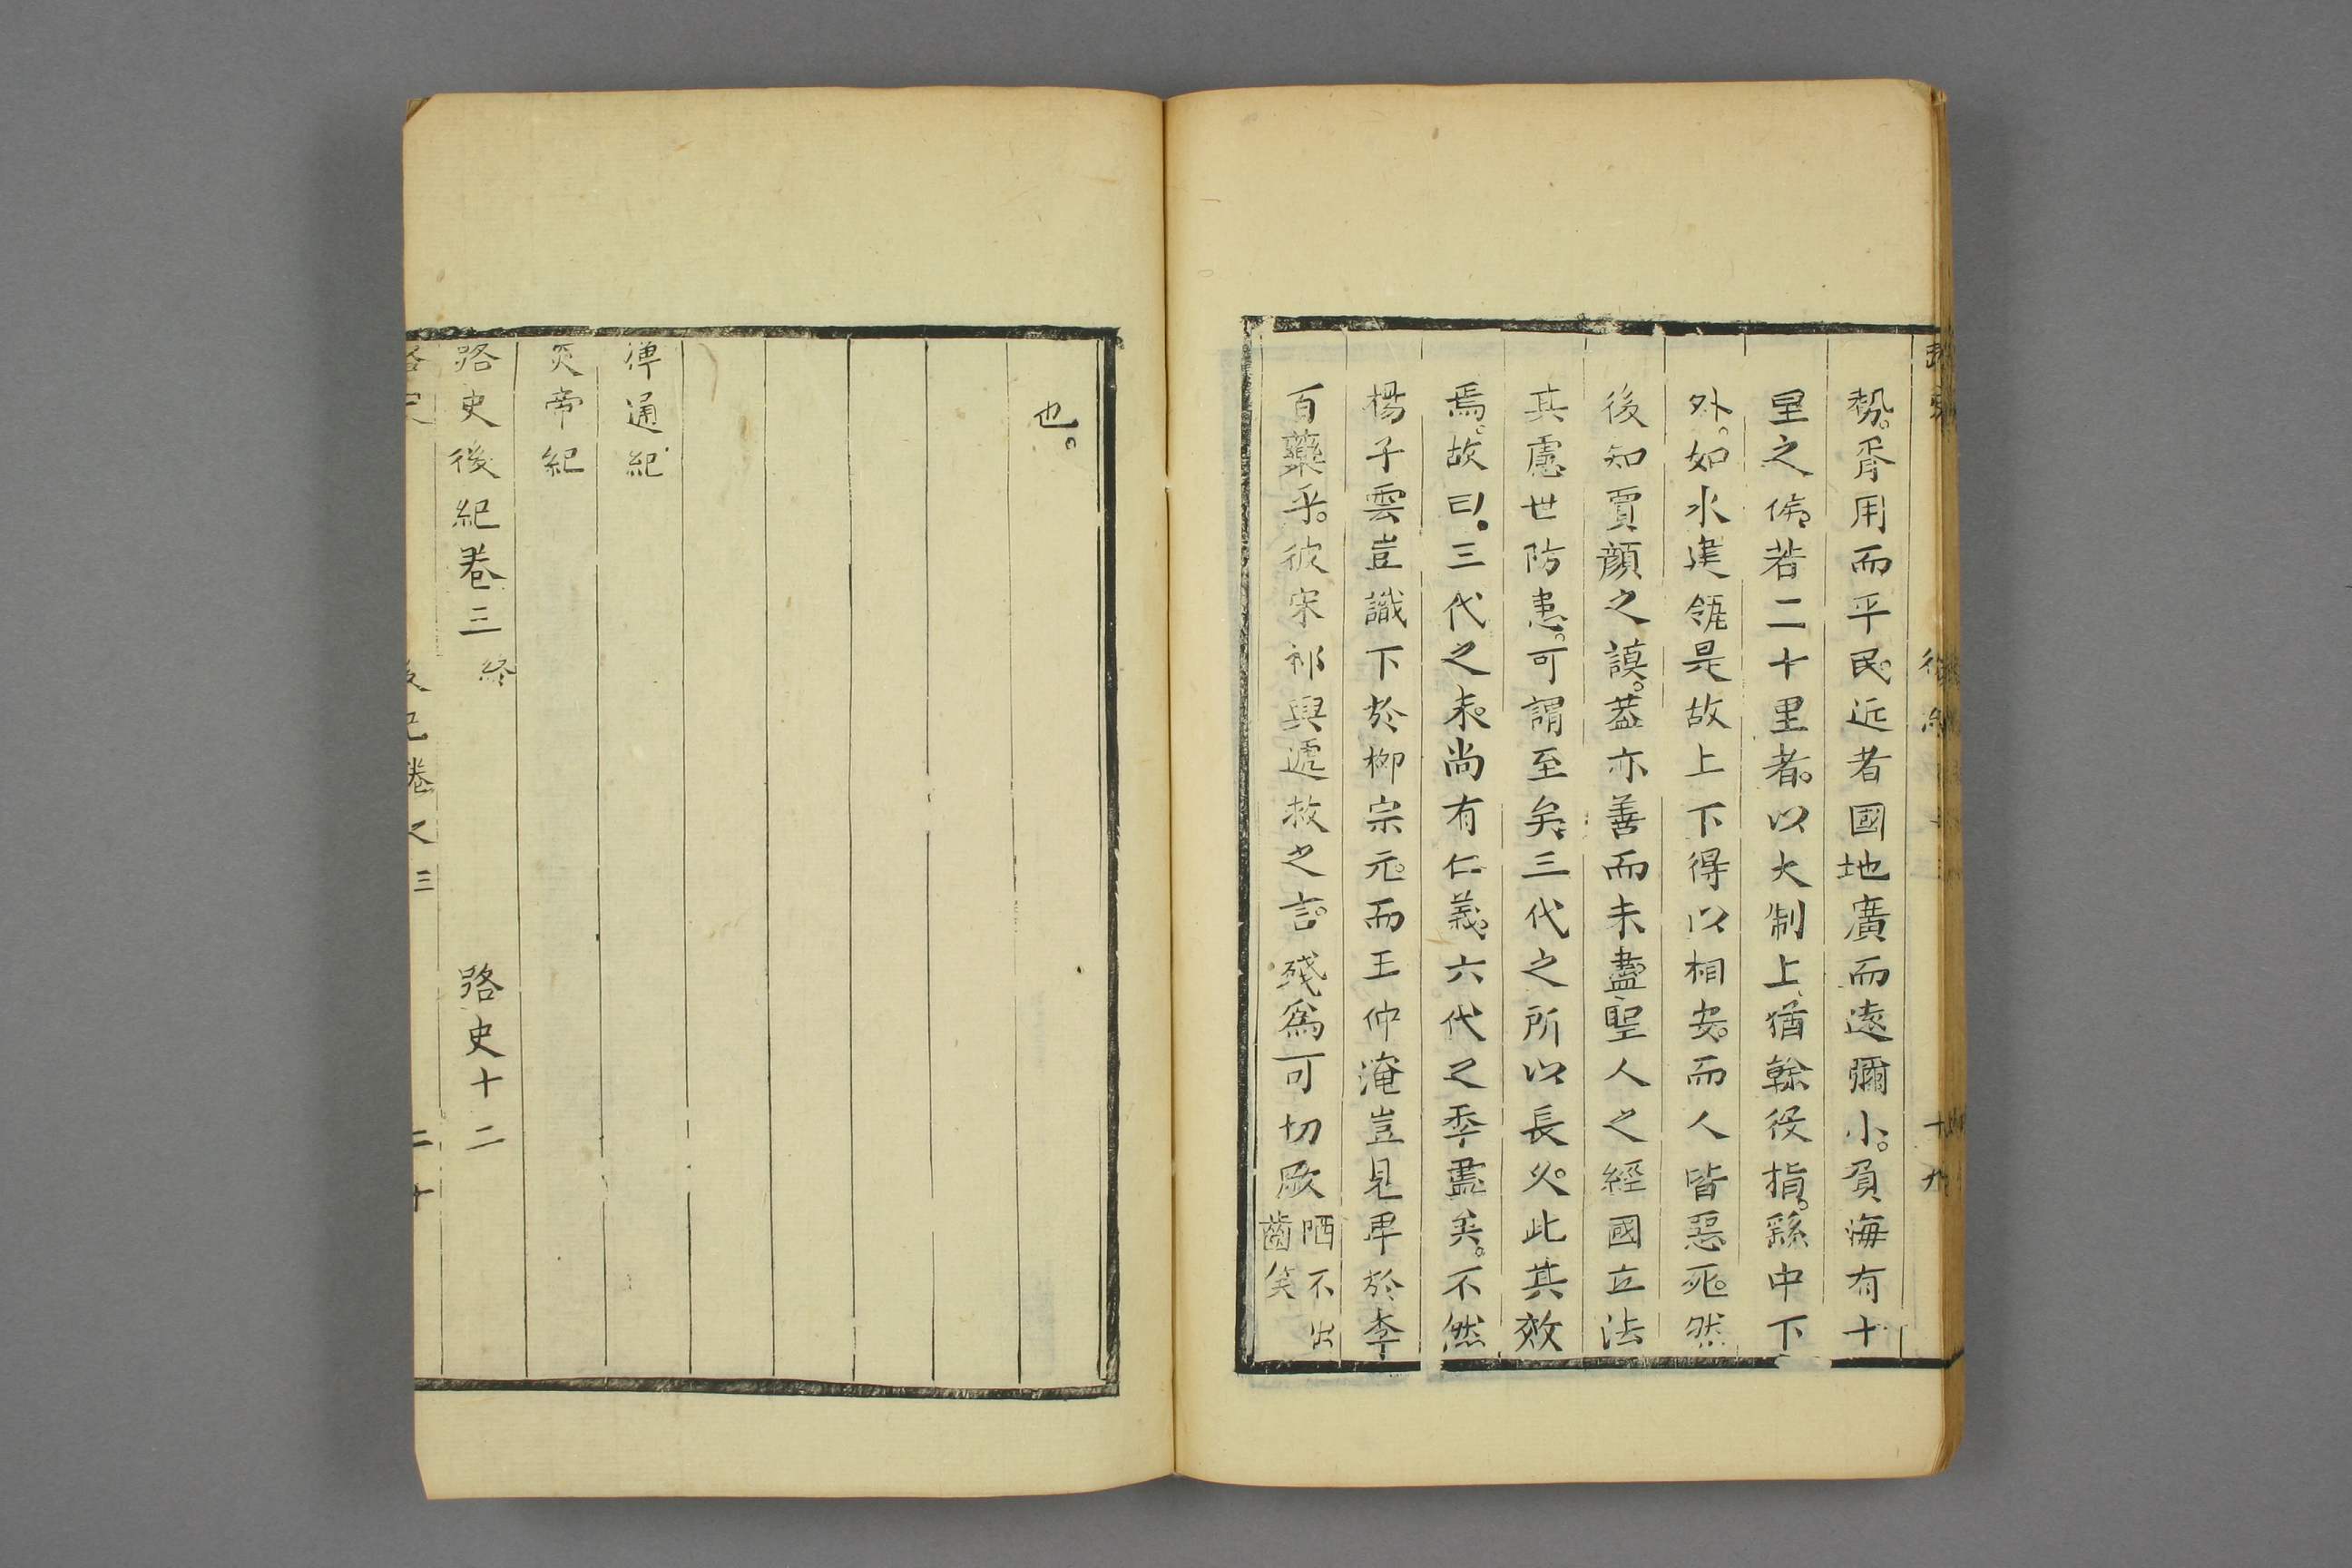 勢。胥用而平民。近者國地廣而遠彌小。負海有十
里之侯。若二十里者。以大制上、猶榦役指。繇中下
外。如水建瓴。是故上下得以相安。而人皆惡死。然
後知賈顔之謨。葢亦善而未盡聖人之經國立法
其慮世防患。可謂至矣。三代之所以長久。此其效
焉。故曰。三代之末。尚有仁義。六代之季盡矣。不然
楊子雲豈識下於柳宗元。而王仲淹豈見卑於李
百藥乎。彼宋祁與遞救之言。殘爲可切歐
哂不出
齒矣
也。
禪通紀
炎帝紀
路史後紀卷三 終 路史十二
後紀卷之三 二十